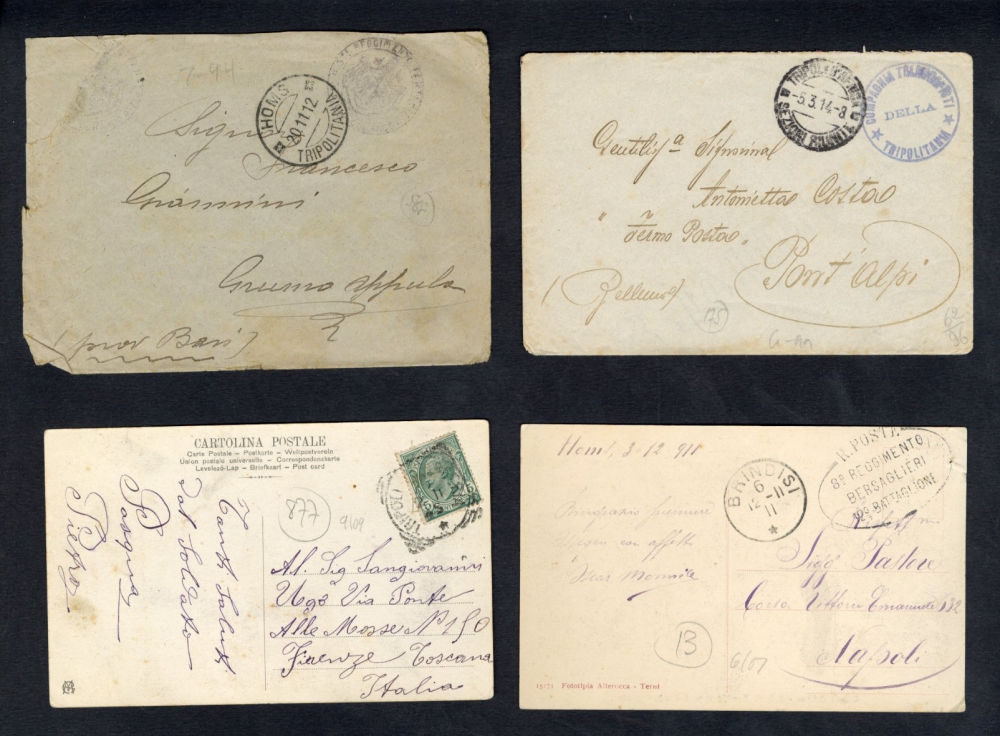 7-94
HOMS
20.11.12
TRIPOLITANIA
Francesco
Giannini
Grumo Appula
(prov Bari)
TRIPOLI
5.3.14-8
COMPAGNIA
DELLA
TRIPOLITANIA
Gentilis.a Signorina
Antonietta Costa
Fermo Posta
Pont' Alpi
(Belluno)
175
62/96
CARTOLINA POSTALE
Carte Postale – Postkarte – Weltpostverein
Union postale universelle – Correspondenzkarte
Levelező-Lap – Briefkaart – Post card
TRIPOLI
877
9/09
Tanti Saluti
dal Soldato
Pasqua
Pietro
Al. Sig Sangiovanni
Ugo Via Ponte
Alle Mosse N° 150
Firenze Toscana
Italia
Homs, 3-12-911
BRINDISI
6
12-11
11
R. POSTE
8º REGGIMENTO
BERSAGLIERI
BATTAGLIONE
con affetto
Sigg Pastore
Corso Vittorio Emanuele 132
Napoli
13
6/07
15171 Fototipia Alterocca - Terni